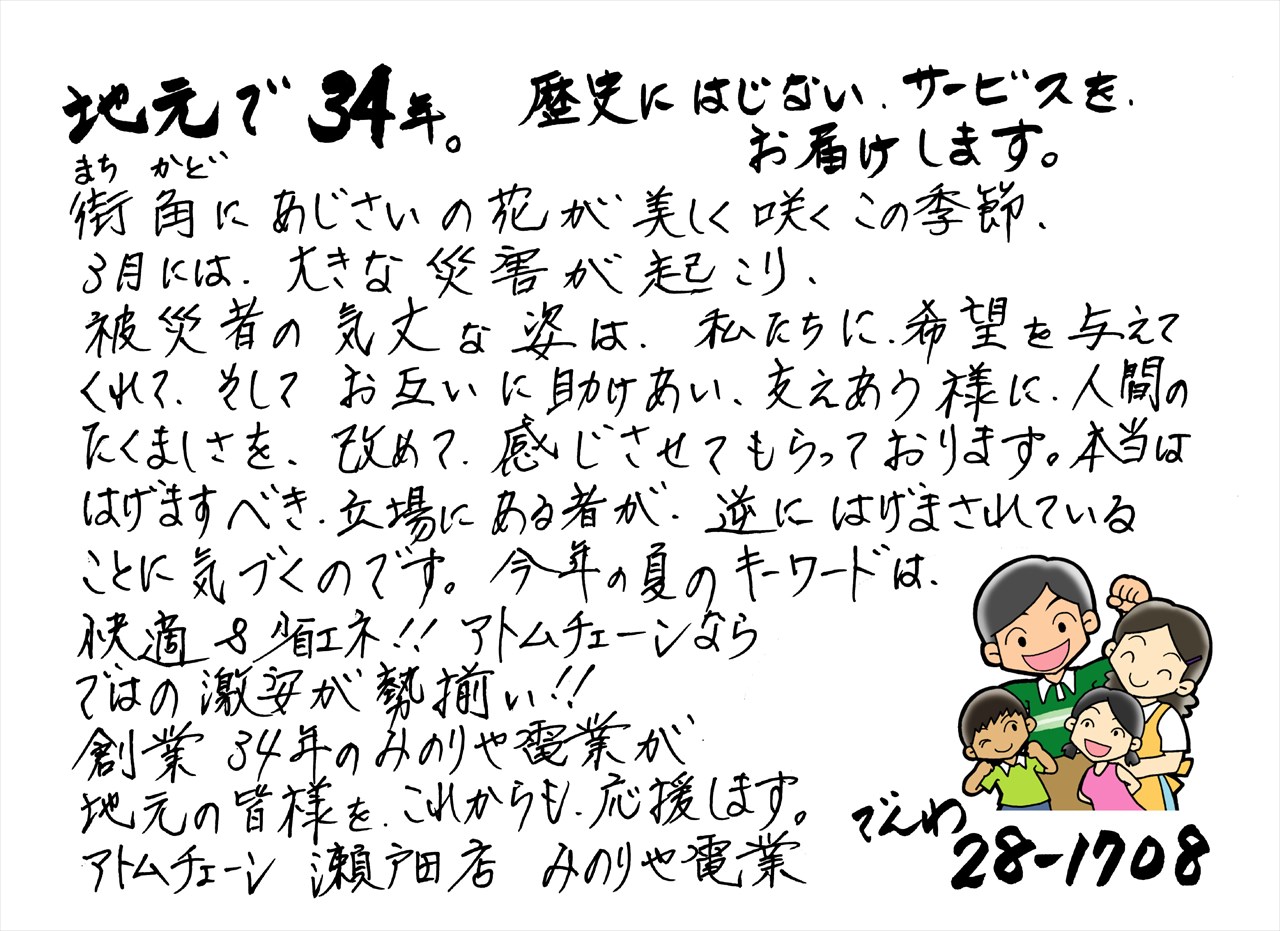 地元で34年。 歴史にはじない、サービスを、
お届けします。
まち かど
街角にあじさいの花が美しく咲くこの季節、
3月には、大きな災害が起こり、
被災者の気丈な姿は、私たちに、希望を与えて
くれて、そして お互いに助けあい、支えあう様に、人間の
たくましさを、改めて、感じさせてもらっております。本当は
はげますべき、立場にある者が、逆にはげまされている
ことに気づくのです。今年の夏のキーワードは、
快適&省エネ!! アトムチェーンなら
ではの激安が勢揃い!!
創業34年のみのりや電業が
地元の皆様を、これからも、応援します。
アトムチェーン 瀬戸田店 みのりや電業
でんわ
28-1708